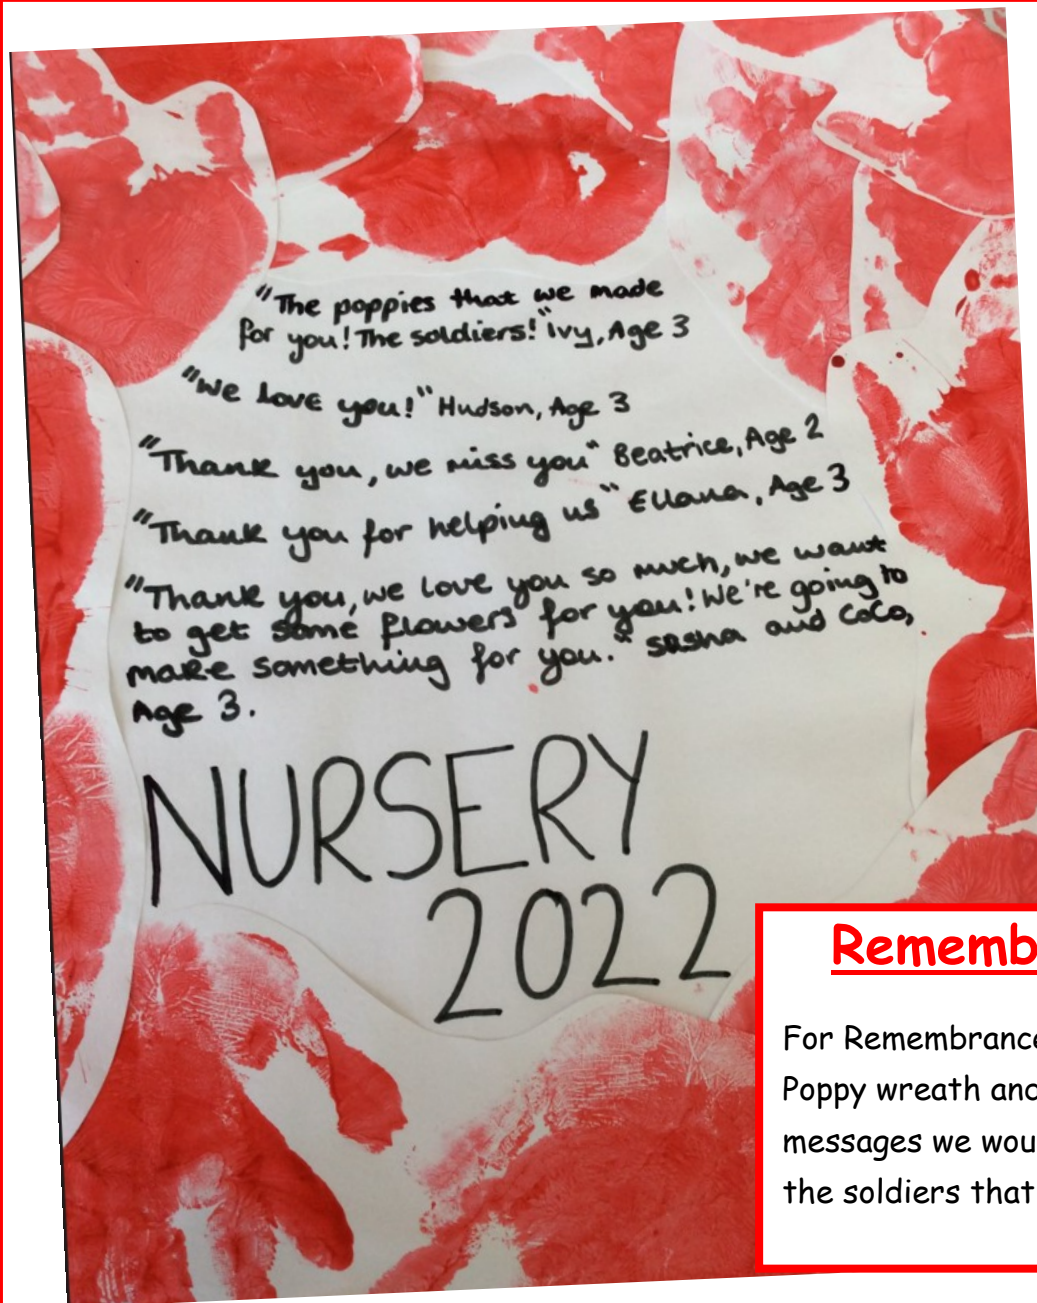 "The poppies that we made
for you! The soldiers!" Ivy, Age 3
"We love you!" Hudson, Age 3
"Thank you, we miss you" Beatrice, Age 2
"Thank you for helping us" Ellana, Age 3
"Thank you, we love you so much, we want
to get some flowers for you! We're going to
make something for you." Sasha and CoCo,
Age 3.
NURSERY
2022
Rememb
For Remembrance
Poppy wreath and
messages we wou
the soldiers that